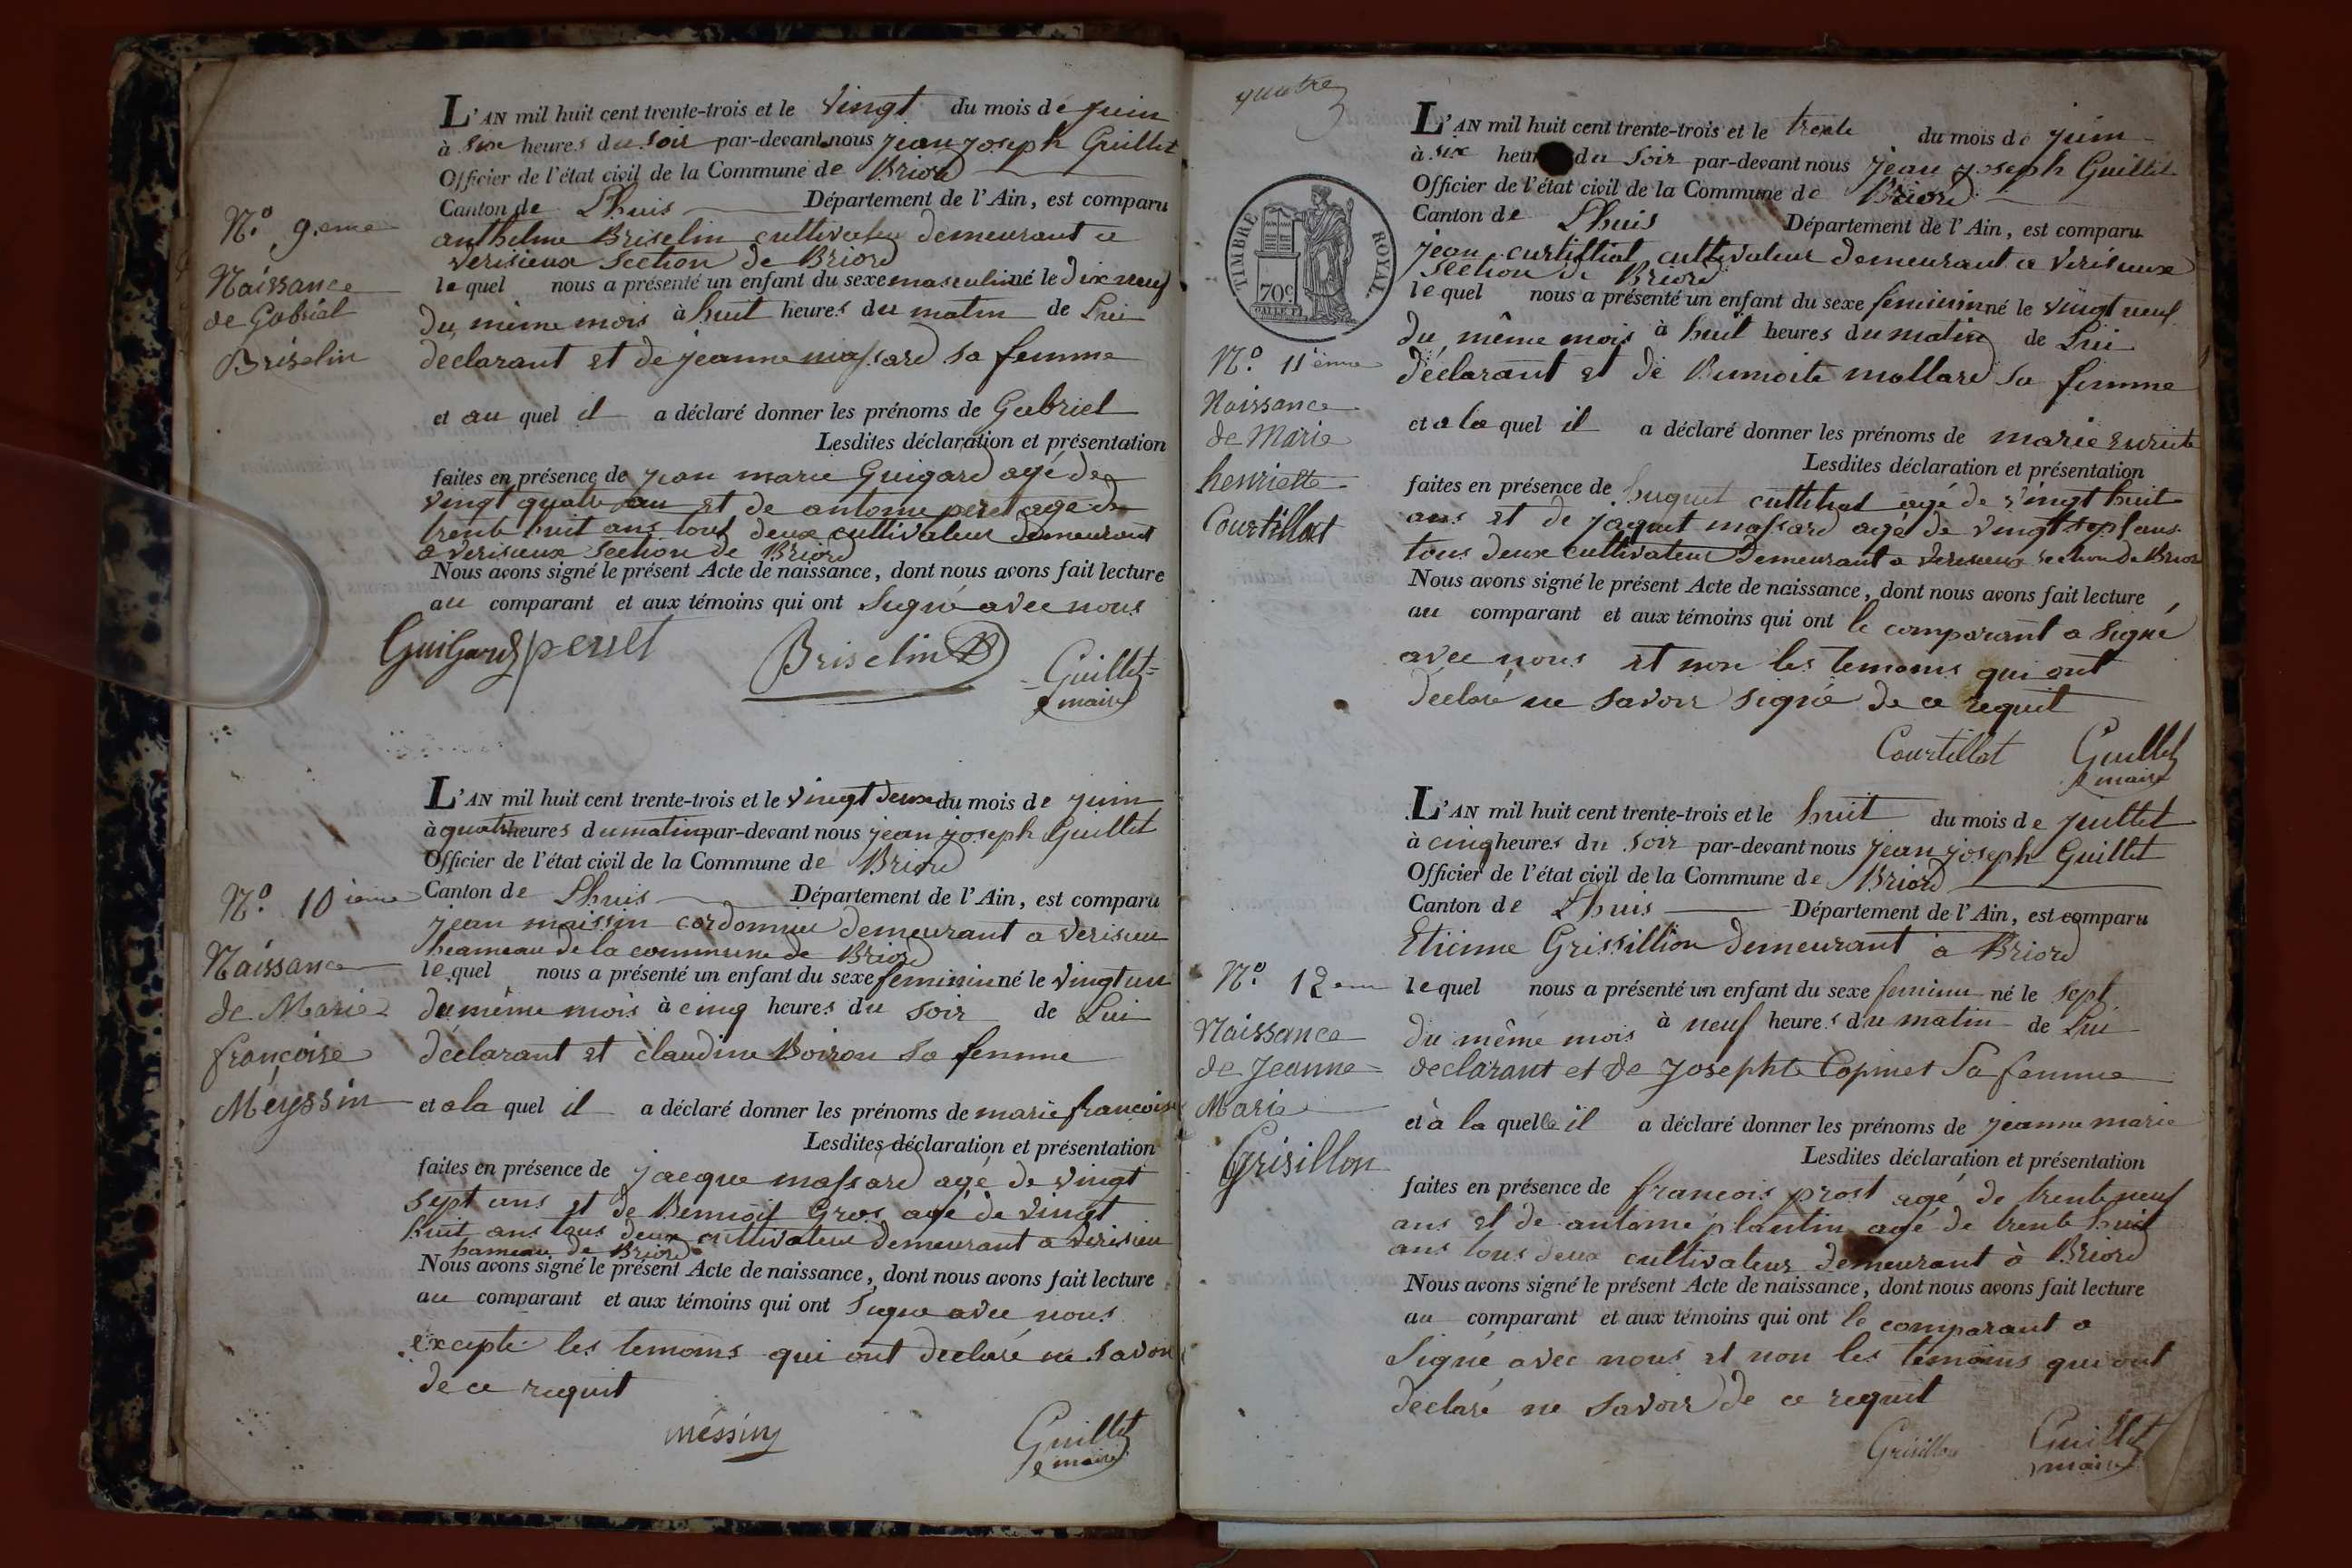 L'AN mil huit cent trente-trois et le vingt du mois de juin
à six heures du soir par-devant nous jean joseph Guillet
Officier de l'état civil de la Commune de Briord
Canton de Lhuis Département de l'Ain, est comparu
anthelme Briselin cultivateur demeurant a
verisieux Section de Briord
le quel nous a présenté un enfant du sexe masculin né le dix neuf
du même mois à huit heures du matin de Lui
déclarant et de jeanne massard sa femme
et au quel il a déclaré donner les prénoms de Gabriel
Lesdites déclaration et présentation
faites en présence de jean marie Guigard agé de
vingt quatre an et de antoine peret agé de
trente huit ans tous deux cultivateur demeurant
a verisieux Section de Briord
Nous avons signé le présent Acte de naissance, dont nous avons fait lecture
au comparant et aux témoins qui ont Signé avec nous
Guigard perret Briselin Guillet
maire
N.º 9.eme
Naissance
de Gabriel
Briselin
L'AN mil huit cent trente-trois et le vingt deux du mois de juin
à quatre heures du matin par-devant nous jean joseph Guillet
Officier de l'état civil de la Commune de Briord
Canton de Lhuis Département de l'Ain, est comparu
jean maissin cordonnier demeurant a verisieu
heameau de la commune de Briord
le quel nous a présenté un enfant du sexe feminin né le vingt un
du même mois à cinq heures du soir de Lui
déclarant et claudine Boiron sa femme
et a la quel il a déclaré donner les prénoms de marie francoise
Lesdites déclaration et présentation
faites en présence de jacque massard agé de vingt
sept ans et de Bennoit Gros agé de vingt
huit ans tous deux cultivateur demeurant a verisieu
hameau de Briord
Nous avons signé le présent Acte de naissance, dont nous avons fait lecture
au comparant et aux témoins qui ont Signé avec nous
excepté les temoins qui ont declaré ne savoir
de ce requit
méssin Guillet
maire
N.º 10 ième
Naissance
de Marie
françoise
Meyssin
quatre
L'AN mil huit cent trente-trois et le trente du mois de juin
à six heures du soir par-devant nous jean joseph Guillet
Officier de l'état civil de la Commune de Briord
Canton de Lhuis Département de l'Ain, est comparu
jean curtilliat cultivateur demeurant a verisieux
section de Briord
le quel nous a présenté un enfant du sexe féminin né le vingt neuf
du même mois à huit heures du matin de Lui
déclarant et de Bennoite mollard sa femme
et a la quel il a déclaré donner les prénoms de marie enriete
Lesdites déclaration et présentation
faites en présence de huguet agé de vingt huit
ans et de jaquet massard agé de vingt sept ans
tous deux cultivateur demeurant a verisieux section de Briord
Nous avons signé le présent Acte de naissance, dont nous avons fait lecture
au comparant et aux témoins qui ont le comparant a signé
avec nous et non les temoins qui ont
déclaré ne savoir signé de ce requit
Courtillat Guillet
maire
TIMBRE ROYAL
70c
N.º 11 ième
Naissance
de Marie
henriette
Courtillat
L'AN mil huit cent trente-trois et le huit du mois de juillet
à cinq heures du soir par-devant nous jean joseph Guillet
Officier de l'état civil de la Commune de Briord
Canton de Lhuis Département de l'Ain, est comparu
Etienne Grissillion demeurant à Briord
le quel nous a présenté un enfant du sexe feminin né le sept
du même mois à neuf heures du matin de Lui
declarant et de Josephte Copinet Sa femme
et à la quelle il a déclaré donner les prénoms de jeanne marie
Lesdites déclaration et présentation
faites en présence de francois prost agé de trente neuf
ans et de antoine plantin agé de trente huit
ans tous deux cultivateur demeurant à Briord
Nous avons signé le présent Acte de naissance, dont nous avons fait lecture
au comparant et aux témoins qui ont le comparant a
Signé avec nous et non les temoins qui ont
déclaré ne savoir de ce requit
Grisillon Guillet
maire
N.º 12 eme
Naissance
de Jeanne
Marie
Grisillon